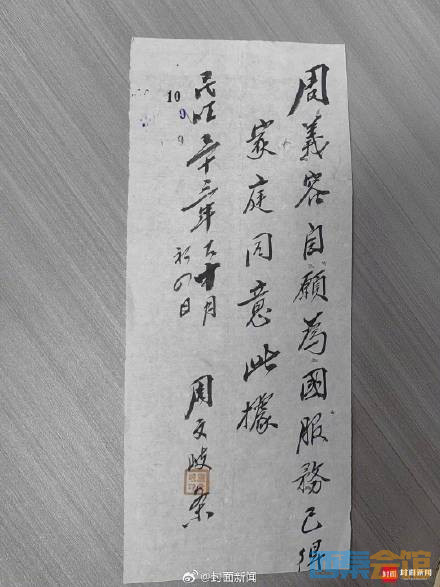 周義容自願為國服務已得
家庭同意此據
民国三十三年古十月
初四日
周文岐条
10
9
9
@封面新闻
封面 封面新闻
西秦会馆